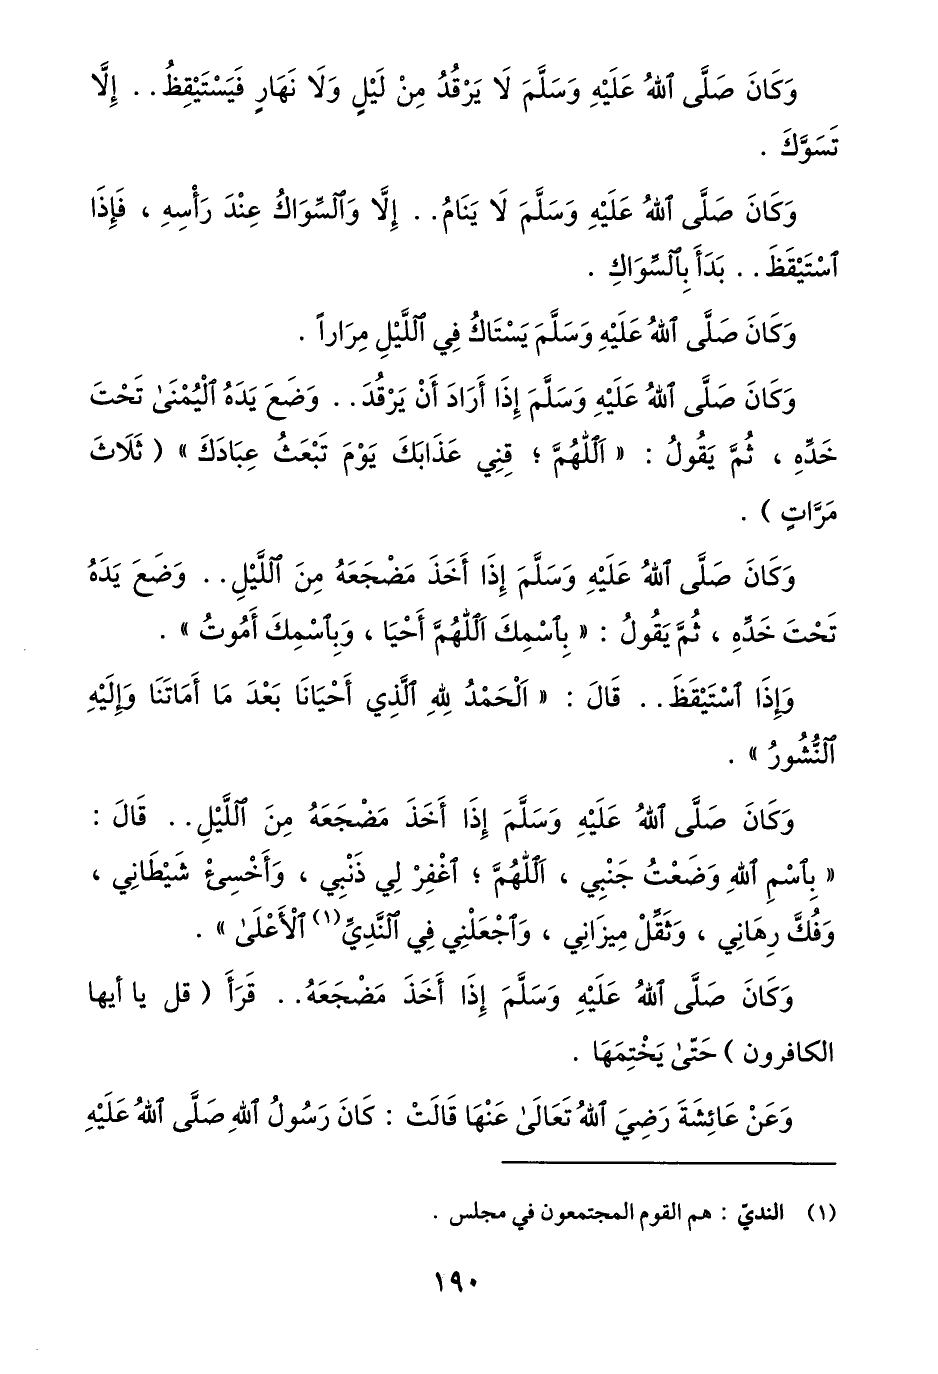 وَكَانَ صَلَّى ٱللهُ عَلَيْهِ وَسَلَّمَ لَا يَرْقُدُ مِنْ لَيْلٍ وَلَا نَهَارٍ فَيَسْتَيْقِظُ.. إِلَّا
تَسَوَّكَ .
وَكَانَ صَلَّى ٱللهُ عَلَيْهِ وَسَلَّمَ لَا يَنَامُ.. إِلَّا وَٱلسِّوَاكُ عِنْدَ رَأْسِهِ ، فَإِذَا
ٱسْتَيْقَظَ.. بَدَأَ بِٱلسِّوَاكِ .
وَكَانَ صَلَّى ٱللهُ عَلَيْهِ وَسَلَّمَ يَسْتَاكُ فِي ٱللَّيْلِ مِرَاراً .
وَكَانَ صَلَّى ٱللهُ عَلَيْهِ وَسَلَّمَ إِذَا أَرَادَ أَنْ يَرْقُدَ.. وَضَعَ يَدَهُ ٱلْيُمْنَىٰ تَحْتَ
خَدِّهِ ، ثُمَّ يَقُولُ : « ٱَللَّهُمَّ ؛ قِنِي عَذَابَكَ يَوْمَ تَبْعَثُ عِبَادَكَ » ( ثَلَاثَ
مَرَّاتٍ ) .
وَكَانَ صَلَّى ٱللهُ عَلَيْهِ وَسَلَّمَ إِذَا أَخَذَ مَضْجَعَهُ مِنَ ٱللَّيْلِ.. وَضَعَ يَدَهُ
تَحْتَ خَدِّهِ ، ثُمَّ يَقُولُ : « بِٱسْمِكَ ٱللَّهُمَّ أَحْيَا ، وَبِٱسْمِكَ أَمُوتُ » .
وَإِذَا ٱسْتَيْقَظَ.. قَالَ : « ٱَلْحَمْدُ لِلهِ ٱلَّذِي أَحْيَانَا بَعْدَ مَا أَمَاتَنَا وَإِلَيْهِ
ٱلنُّشُورُ » .
وَكَانَ صَلَّى ٱللهُ عَلَيْهِ وَسَلَّمَ إِذَا أَخَذَ مَضْجَعَهُ مِنَ ٱللَّيْلِ.. قَالَ :
« بِٱسْمِ ٱللهِ وَضَعْتُ جَنْبِي ، ٱَللَّهُمَّ ؛ ٱغْفِرْ لِي ذَنْبِي ، وَأَخْسِئْ شَيْطَانِي ،
وَفُكَّ رِهَانِي ، وَثَقِّلْ مِيزَانِي ، وَٱجْعَلْنِي فِي ٱلنَّدِيِّ(١) ٱلْأَعْلَىٰ » .
وَكَانَ صَلَّى ٱللهُ عَلَيْهِ وَسَلَّمَ إِذَا أَخَذَ مَضْجَعَهُ.. قَرَأَ ( قل يا أيها
الكافرون ) حَتَّىٰ يَخْتِمَهَا .
وَعَنْ عَائِشَةَ رَضِيَ ٱللهُ تَعَالَىٰ عَنْهَا قَالَتْ : كَانَ رَسُولُ ٱللهِ صَلَّى ٱللهُ عَلَيْهِ
(١) النديّ : هم القوم المجتمعون في مجلس .
١٩٠